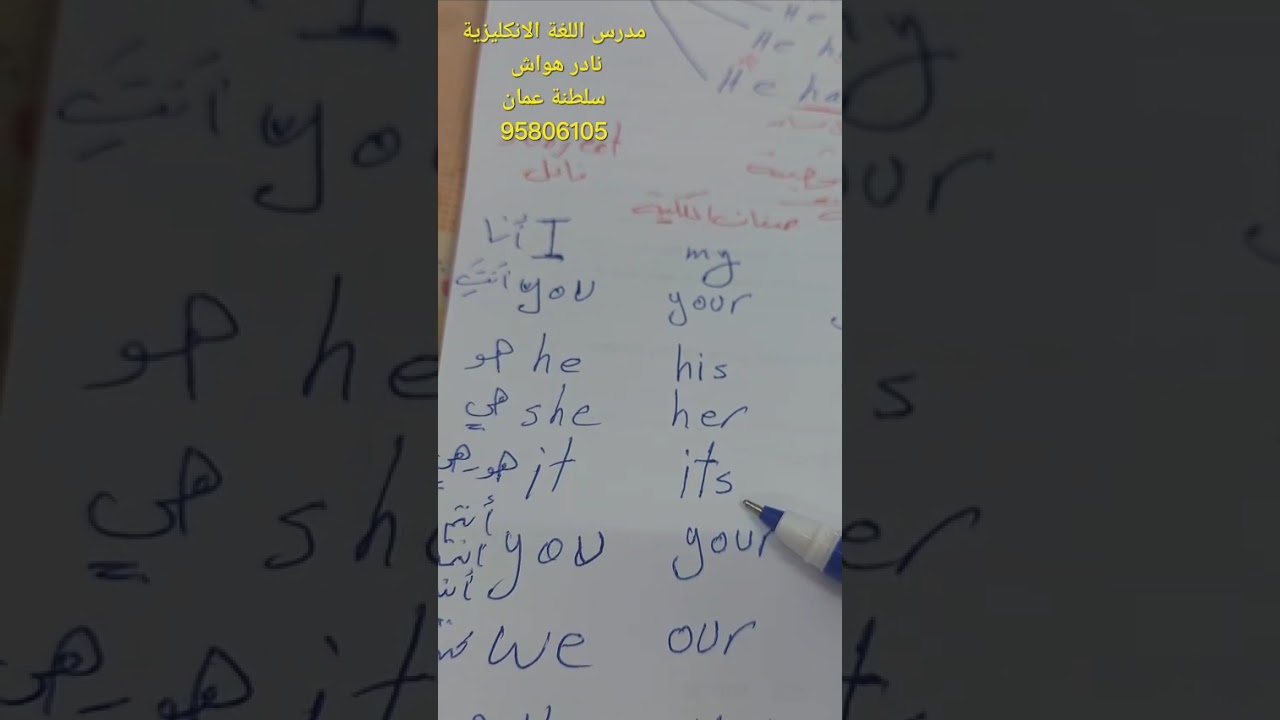 مدرس اللغة الانكليزية
نادر هواش
سلطنة عمان
95806105
He
He
He ha
فاعل
صفات الملكية
أنا I my
أنتَِ you your
هو he his
هي she her
هو-هي it its
أنتم
you your
we our